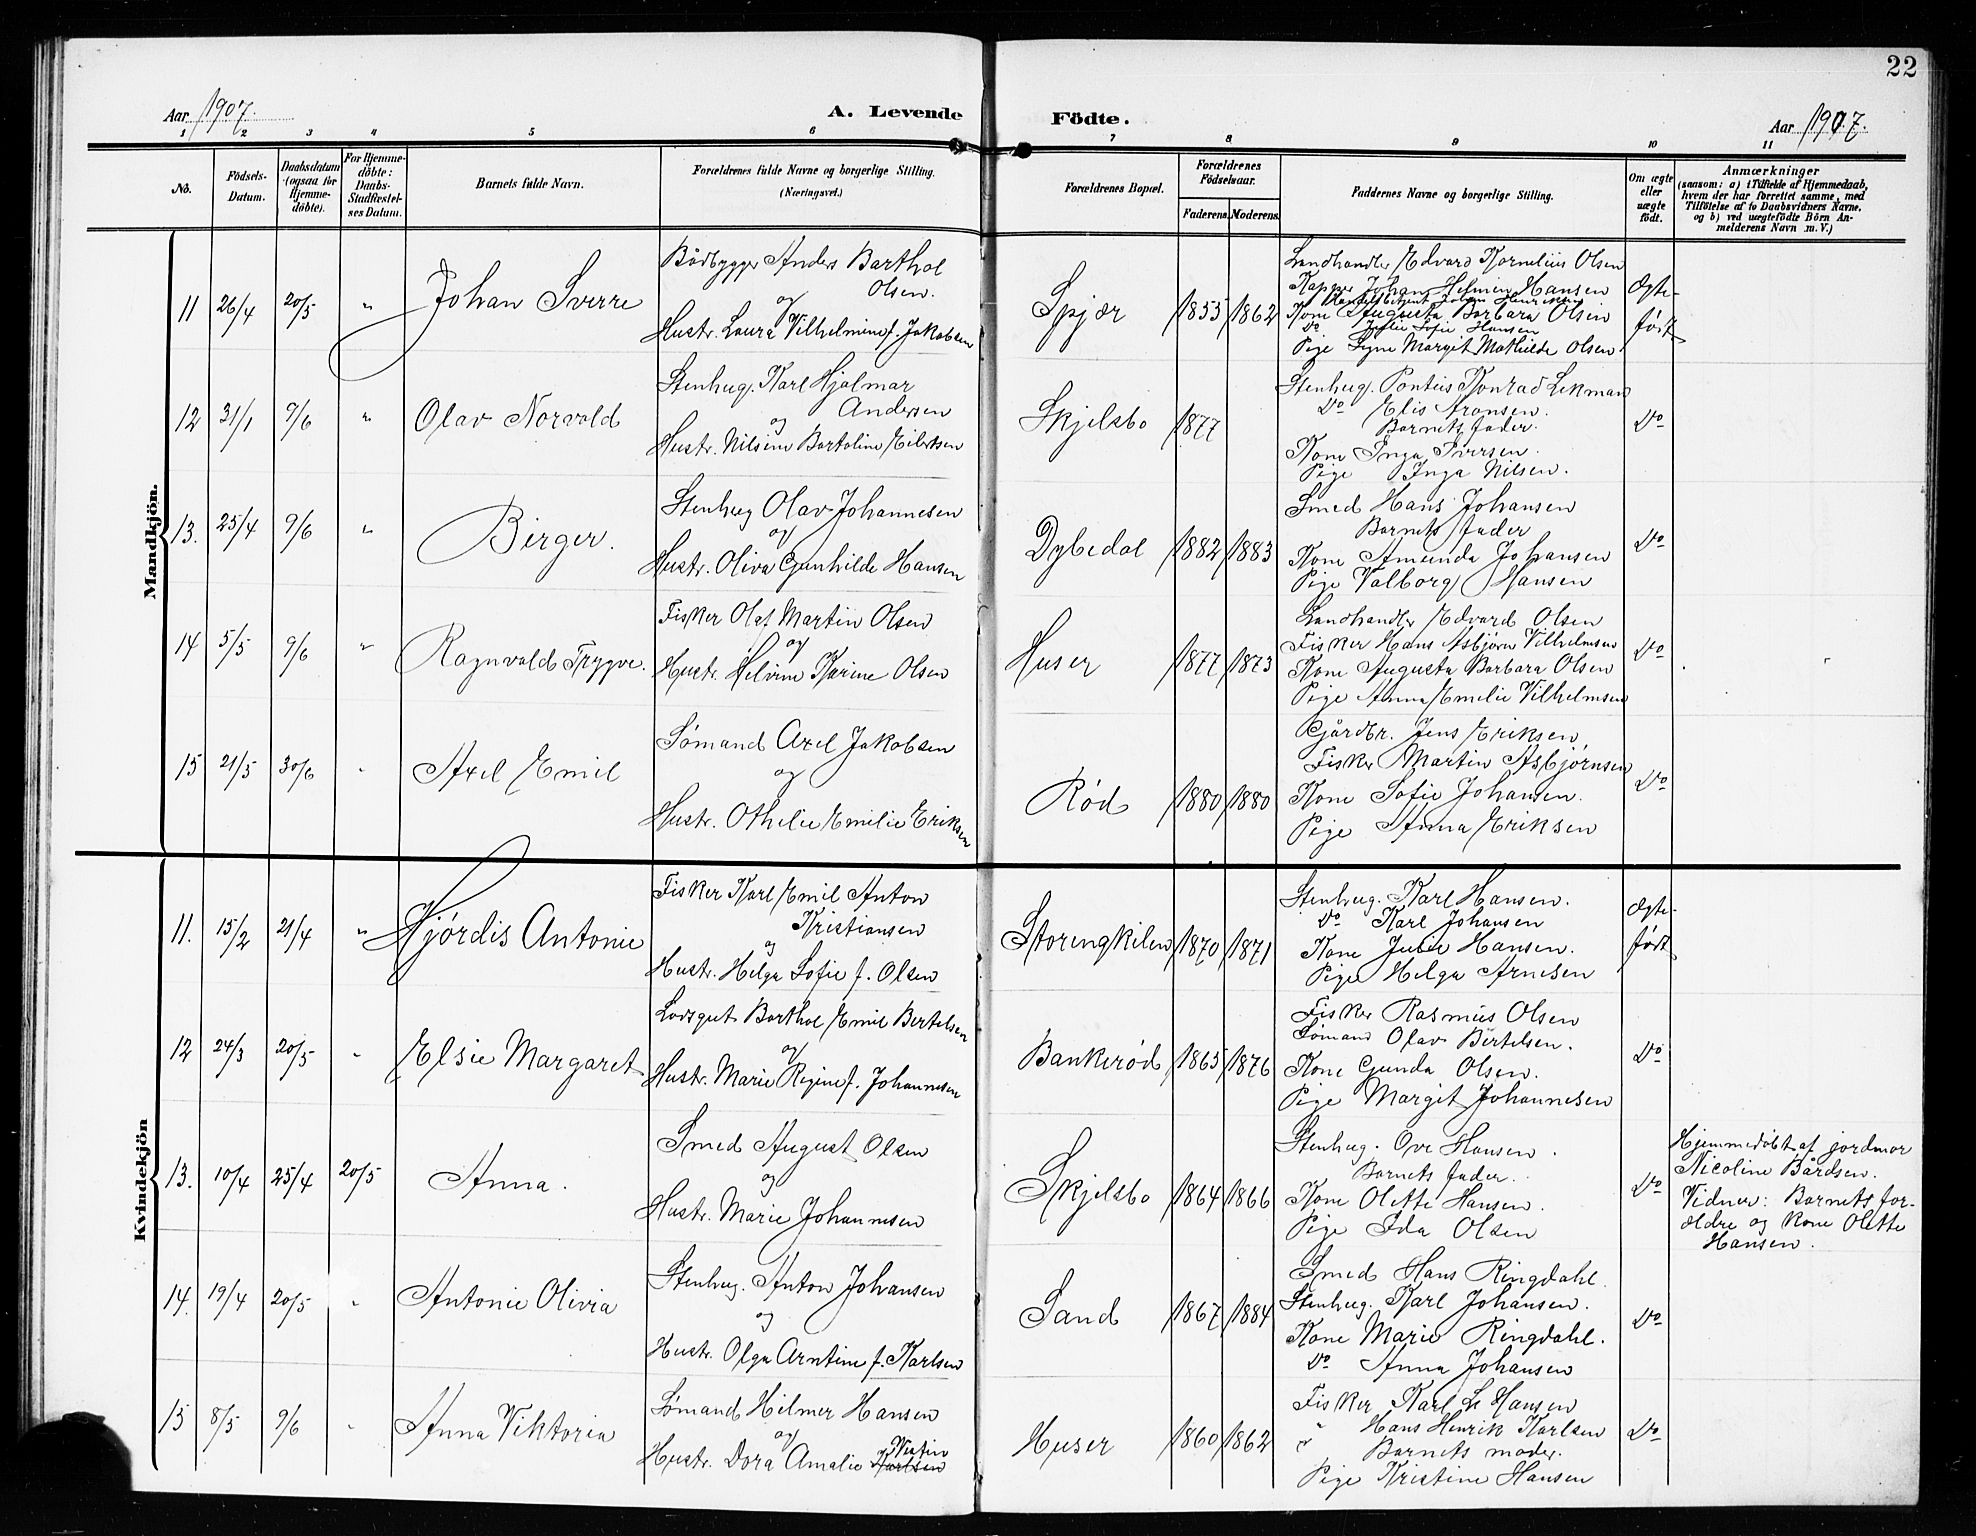 22
Aar 1907.
A. Levende Födte.
Aar 1907.
1 2 3 4 5 6 7 8 9 10 11
No.
Födsels-
Datum.
Daabsdatum
(ogsaa för
Hjemme-
döbte).
For Hjemme-
döbte:
Daabs-
Stadfæstel-
ses Datum.
Barnets fulde Navn.
Forældrenes fulde Navne og borgerlige Stilling.
(Næringsvei.)
Forældrenes Bopæl.
Forældrenes
Födselsaar.
Faderens.
Moderens.
Faddernes Navne og borgerlige Stilling.
Om ægte
eller
uægte
födt.
Anmærkninger
(saasom: a) i Tilfælde af Hjemmedaab,
hvem der har forrettet samme, med
Tilföielse af to Daabsvidners Navne,
og b) ved uægtefödte Börn An-
melderens Navn m. V.)
Mandkjön.
11 26/4 20/5 " Johan Sverre
Bådbygger Anders Barthol
Olsen.
og
Hustr. Laura Vilhelmine f. Jakobsen
Spjær 1855 1862
Landhandler Edvard Kornelius Olsen
Kapper Johan Helmen Hansen
Handelsbetjent Johan Henriksen
Kone Augusta Barbara Olsen
Do Julie Sofie Hansen
Pige Signe Margit Mathilde Olsen
Ægte-
født
12 31/1 9/6 " Olav Norvald
Stenhug. Karl Hjalmar
Andersen
og
Hustr. Nilsine Bartoline Eilertsen
Skjelsbo 1877
Stenhug. Pontus Konrad Lekman
Do Elis Aronsen.
Barnets fader.
Kone Inga Iversen.
Pige Inga Nilsen.
Do
13. 25/4 9/6 " Birger.
Stenhug Olav Johannesen
og
Hustr. Oliva Gunhilde Hansen
Dybedal 1882 1883
Smed Hans Johansen
Barnets fader
Kone Amunda Johansen
Pige Valborg Hansen
Do
14 5/5 9/6 " Ragnvald Trygve.
Fisker Olaf Martin Olsen
og
Hustr. Helvine Karine Olsen
Huser 1877 1873
Landhandler Edvard Olsen
Fisker Hans Asbjørn Vilhelmsen
Kone Augusta Barbara Olsen
Pige Anna Emelie Vilhelmsen
Do
15 21/5 30/6 " Axel Emil
Sømand Axel Jakobsen
og
Hustr. Othelie Emelie Eriksen
Rød 1880 1880
Gårdbr. Jens Eriksen,
Fisker Martin Asbjørnsen
Kone Sofie Johansen.
Pige Anna Eriksen
Do
Kvindekjön
11. 15/2 21/4 " Hjørdis Antonie
Fisker Karl Emil Anton
Kristiansen
og
Hustr. Helga Sofie f. Olsen
Storengkilen 1870 1871
Stenhug. Karl Hansen.
Do Karl Johansen
Kone Julie Hansen.
Pige Helga Arnesen
Ægte-
født
12 24/3 20/5 " Elsie Margaret
Lodsgut Barthol Emil Bertelsen
og
Hustr. Marie Regine f. Johannesen
Bankerød 1865 1876
Fisker Rasmus Olsen
Sømand Olav Bertelsen.
Kone Gunda Olsen.
Pige Margit Johannesen
Do
13. 10/4 25/4 20/5 Anna.
Smed August Olsen
og
Hustr. Marie Johannesen
Skjelsbo 1864 1866
Stenhug. Ove Hansen.
Barnets fader.
Kone Olette Hansen.
Pige Ida Olsen
Do
Hjemmedøbt af jordmor
Nicoline Bårdsen.
Vidner: Barnets for-
ældre og Kone Olette
Hansen.
14. 19/4 20/5 " Antonie Olivia
Stenhug. Anton Johansen
og
Hustr. Olga Arntine f. Karlsen
Sand 1867 1884
Smed Hans Ringdahl.
Stenhug. Karl Johansen.
Kone Marie Ringdahl.
Do Anna Johansen
Do
15 8/5 9/6 " Anna Viktoria
Sømand Hilmer Hansen
og
Hustr. Dora Amalie Karlsen
Huser 1860 1862
Fisker Karl L Hansen
" Hans Henrik Karlsen
" Barnets moder.
Pige Kristine Hansen
Do